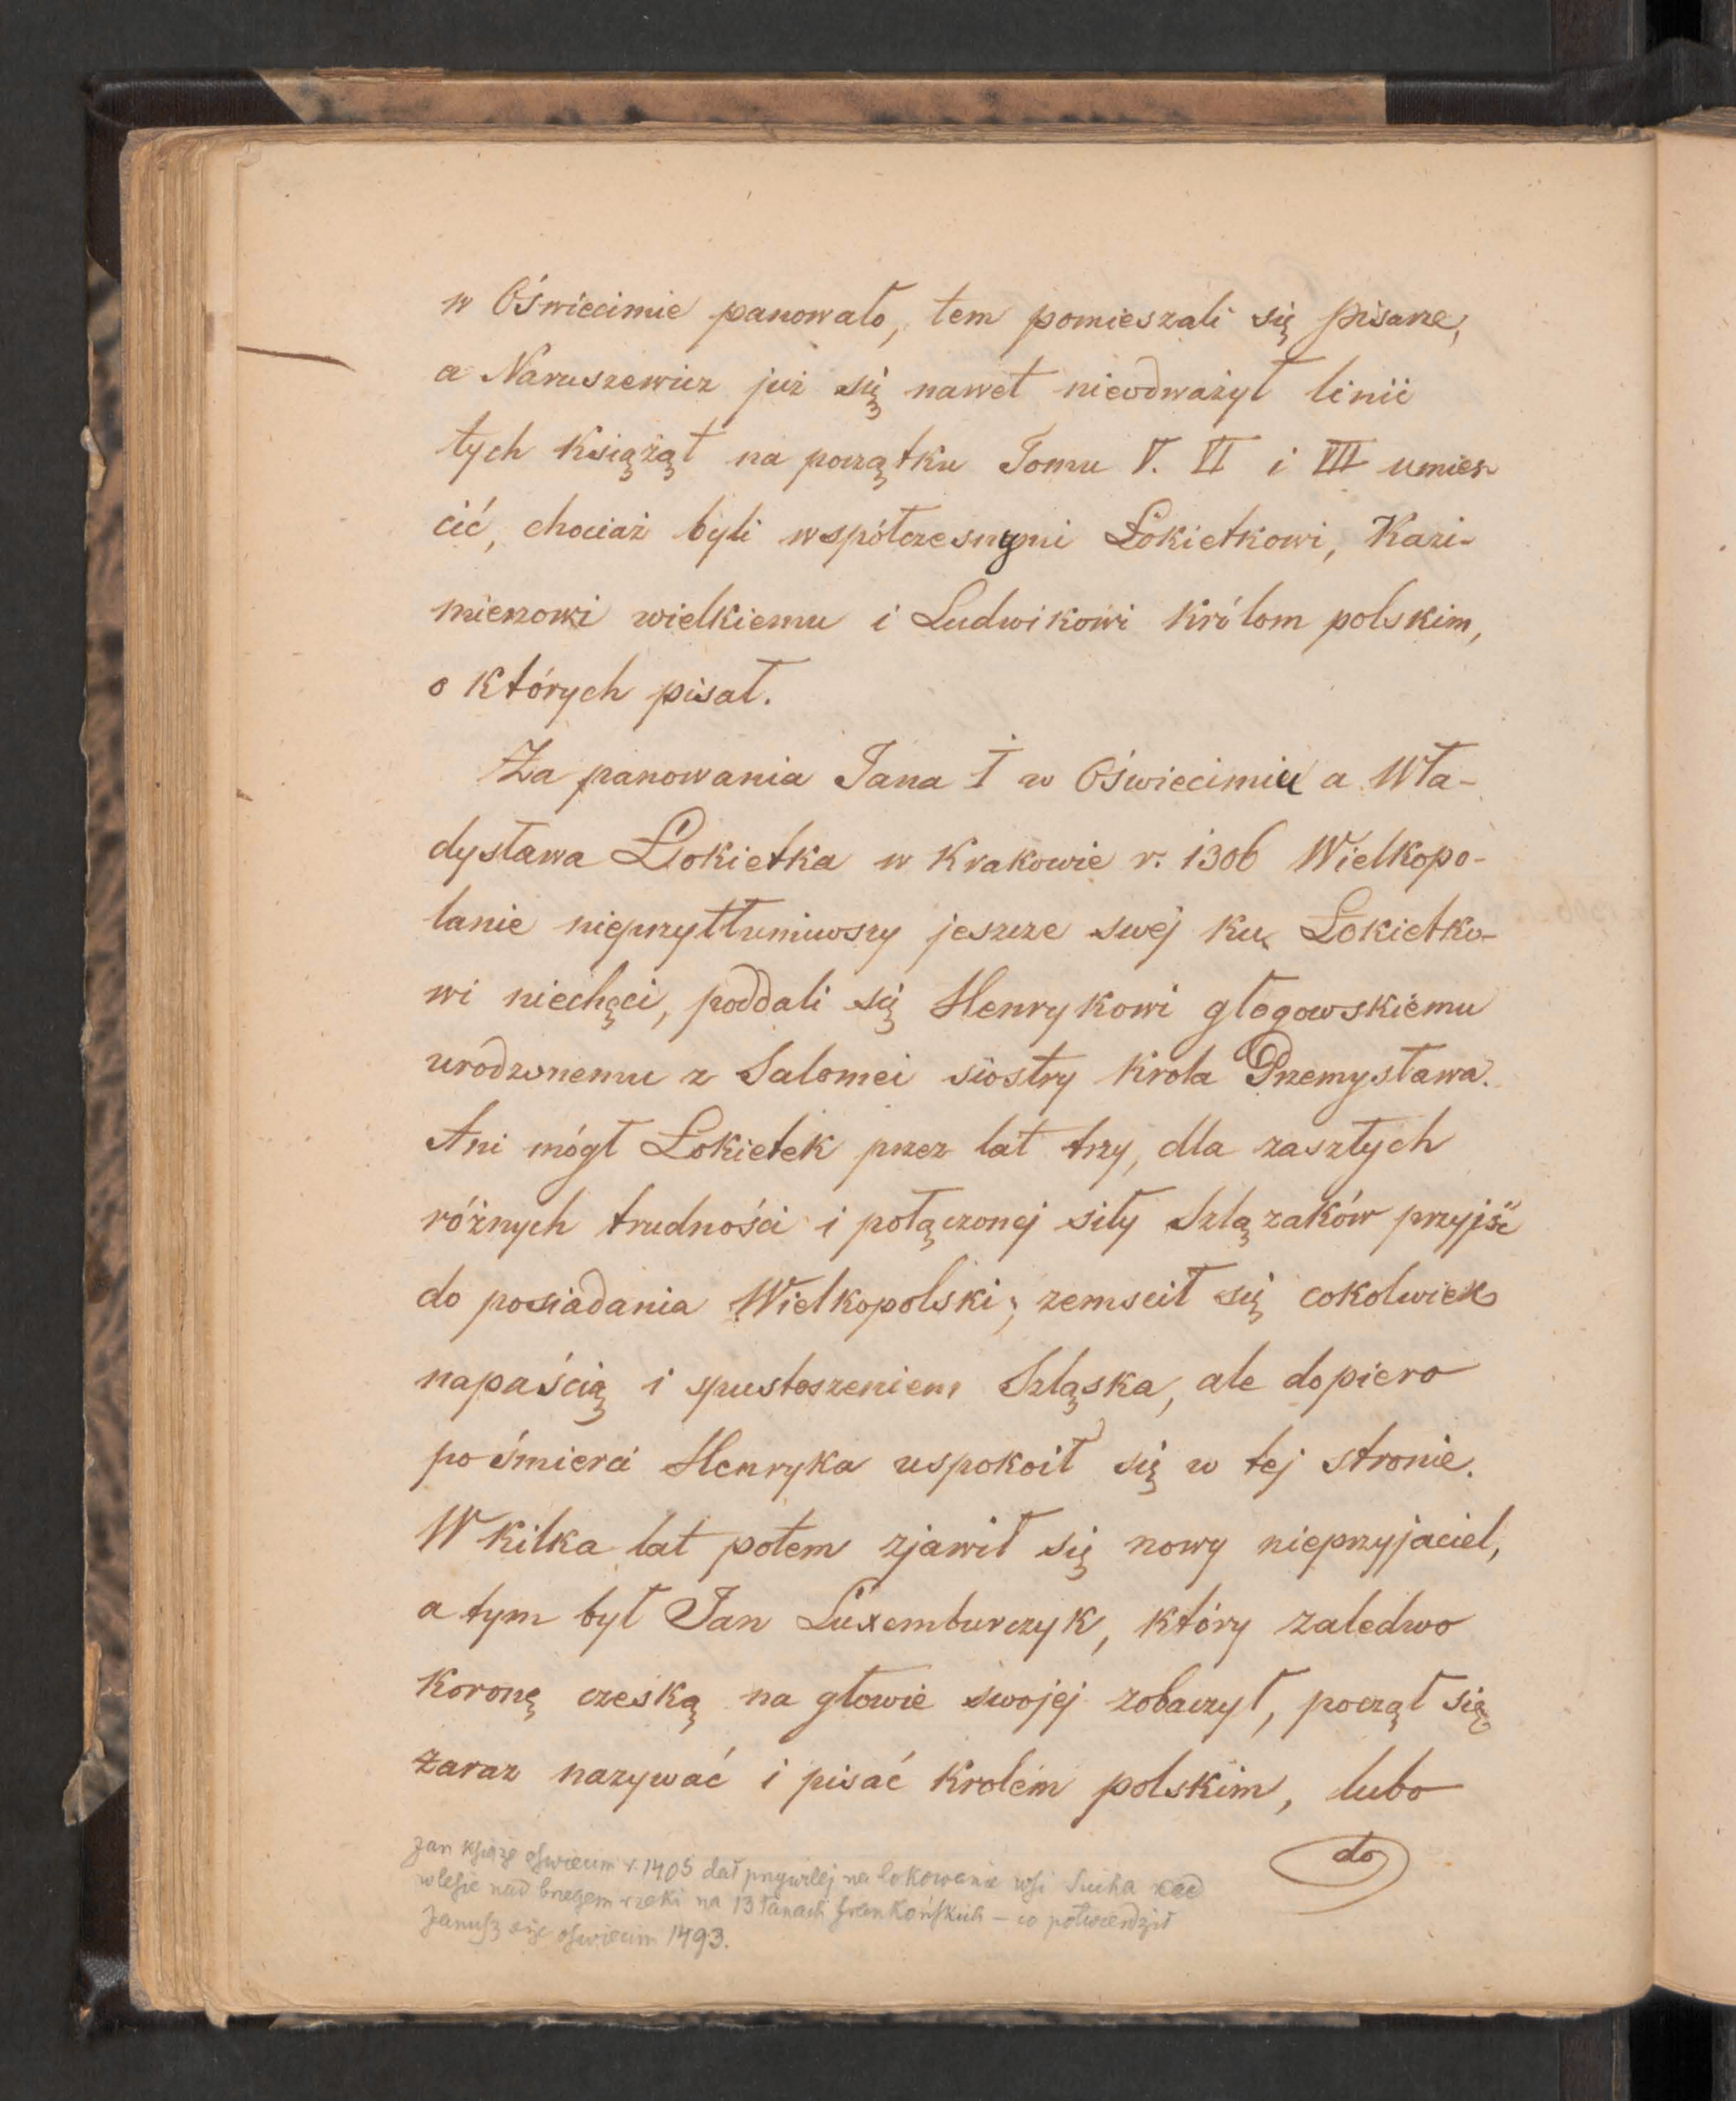 w Oświecimie panowało, tem pomieszali się pisarze,
a Naruszewicz już się nawet nieodważył linii
tych Książąt na początku Tomu V. VI i VII umies-
cić, chociaż byli współczesnymi Łokietkowi, Kazi-
mierzowi wielkiemu i Ludwikowi królom polskim,
o których pisał.
Za panowania Jana I w Oświecimiu a Wła-
dysława Łokietka w Krakowie r. 1306 Wielkopo-
lanie nieprzytłumiwszy jeszcze swej ku Łokietko-
wi niechęci, poddali się Henrykowi głogowskiemu
urodzonemu z Salomei siostry Krola Przemysława.
Ani mógł Łokietek przez lat trzy, dla zaszłych
różnych trudności i połączonej siły Szlązaków przyjść
do posiadania Wielkopolski; zemscił się cokolwiek
napaścią i spustoszeniem Szląska, ale dopiero
po śmierci Henryka uspokoił się w tej stronie.
W kilka lat potem zjawił się nowy nieprzyjaciel,
a tym był Jan Luxemburczyk, który zaledwo
Koronę czeską na głowie swojej zobaczył, począł się
zaraz nazywać i pisać krolem polskim, lubo
do
Jan Książe oswiecim r. 1405 dał przywilej na lokowanie wsi Sucha
w lesie nad brzegem rzeki na 13 łanach frankońskich – co potwierdził
Janusz oswiecim 1493.